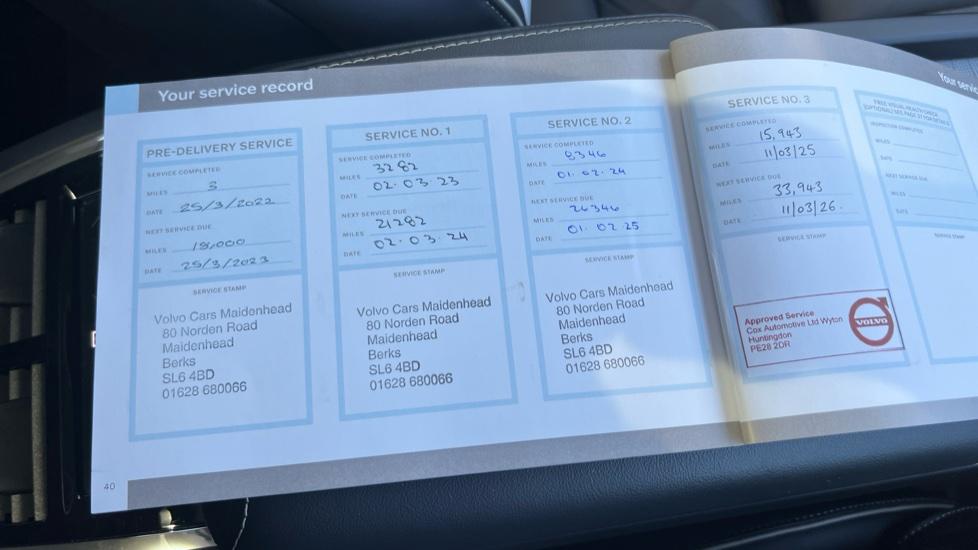 Your service record
PRE-DELIVERY SERVICE
SERVICE COMPLETED
MILES 3
DATE 25/3/2022
NEXT SERVICE DUE
MILES 18,000
DATE 25/3/2023
SERVICE STAMP
Volvo Cars Maidenhead
80 Norden Road
Maidenhead
Berks
SL6 4BD
01628 680066
SERVICE NO. 1
SERVICE COMPLETED
MILES 3282
DATE 02.03.23
NEXT SERVICE DUE
MILES 21282
DATE 02.03.24
SERVICE STAMP
Volvo Cars Maidenhead
80 Norden Road
Maidenhead
Berks
SL6 4BD
01628 680066
SERVICE NO. 2
SERVICE COMPLETED
MILES 8346
DATE 01.02.24
NEXT SERVICE DUE
MILES 26346
DATE 01.02.25
SERVICE STAMP
Volvo Cars Maidenhead
80 Norden Road
Maidenhead
Berks
SL6 4BD
01628 680066
40
Your
SERVICE NO. 3
SERVICE COMPLETED
MILES 15,943
DATE 11/03/25
NEXT SERVICE DUE
MILES 33,943
DATE 11/03/26.
SERVICE STAMP
Approved Service
Cox Automotive Ltd Wyton
Huntingdon
PE28 2DR
VOLVO
FREE VISUAL HEALTH CHECK
(OPTIONAL) SEE PAGE 37 FOR DETAILS
INSPECTION COMPLETED
MILES
DATE
NEXT SERVICE DUE
MILES
DATE
SERVICE STAMP